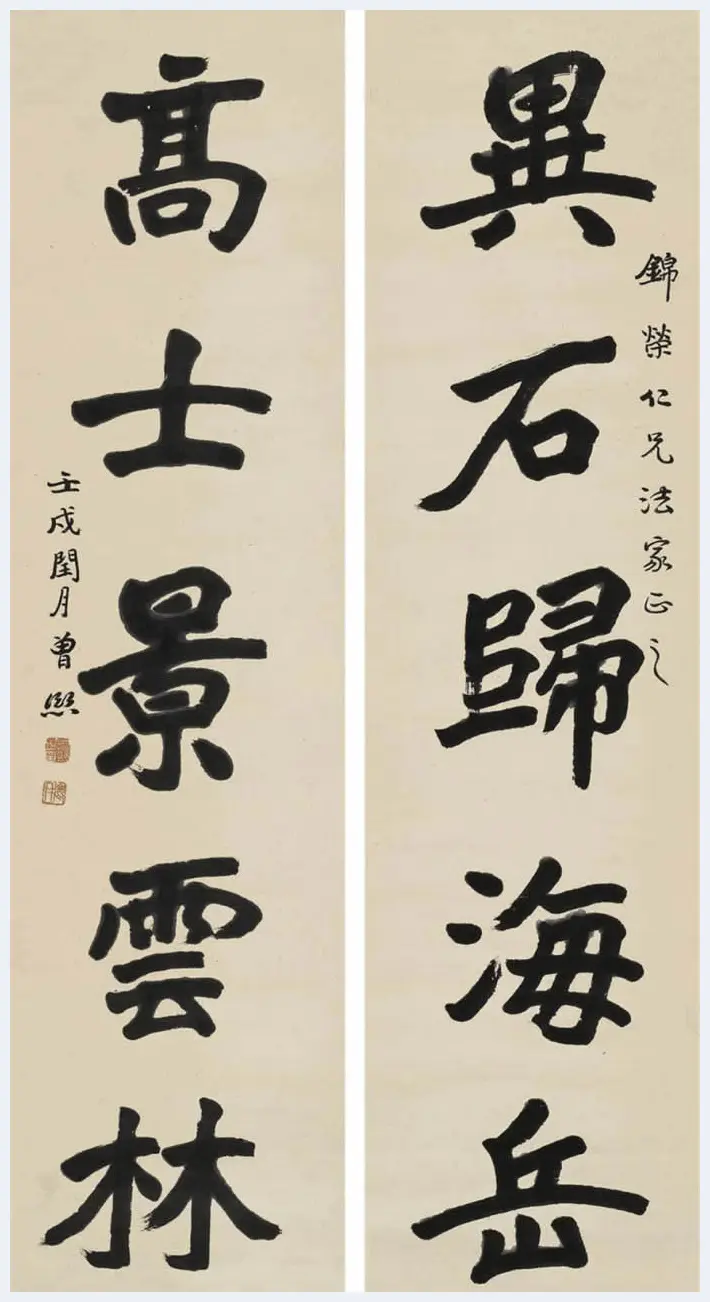 異石歸海岳
錦榮仁兄法家正之
高士景雲林
壬戌閏月曾熙